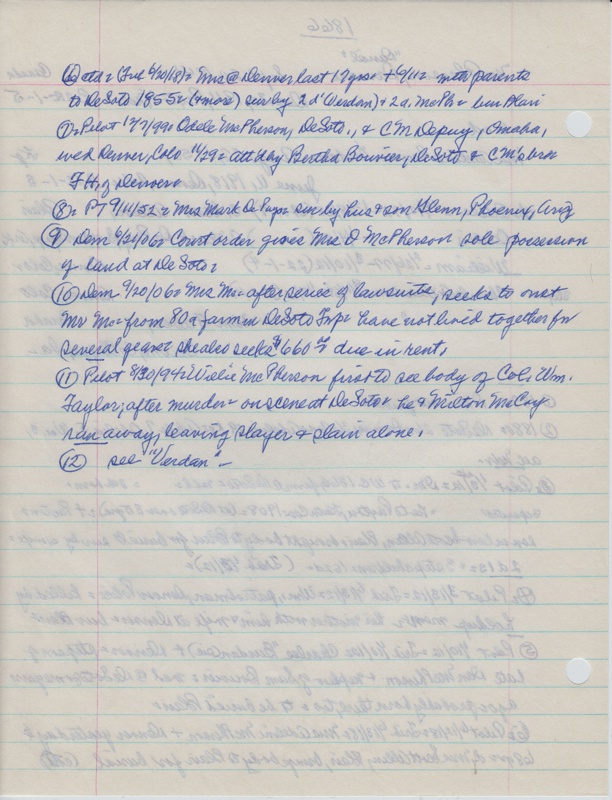 1866
(6) ctd = (Fri 6/20/18) = Mrs @ Denver last 17 yrs = + 6/11 = with parents
to DeSoto 1855 = (+ more) sur by 2 d (Verdan) + 2 a. McPh = bur Blair
(7) = Pilot 12/7/99 = Odele McPherson, DeSoto, & C M Depuy, Omaha,
wed Denver, Colo 11/29 = att day Bertha Bouvier, DeSoto & CM's bro
F.H. of Denver =
(8) = PT 9/11/52 = Mrs Mark De Pup = sur by hus & son Glenn, Phoenix, Ariz
(9) Dem 6/21/06 = Court order gives Mrs O McPherson sole possession
of land at DeSoto =
(10) Dem 9/20/06 = Mrs Mc = after series of lawsuits, seeks to oust
Mr Mc = from 80 a farm in DeSoto Twp = have not lived together for
several years = she also seeks $660 due in rent,
(11) Pilot 8/30/94 = Willie McPherson first to see body of Col. Wm.
Taylor, after murder = on scene at DeSoto & he & Milton McCoy
ran away, leaving slayer & slain alone.
(12) see "Verdan" -